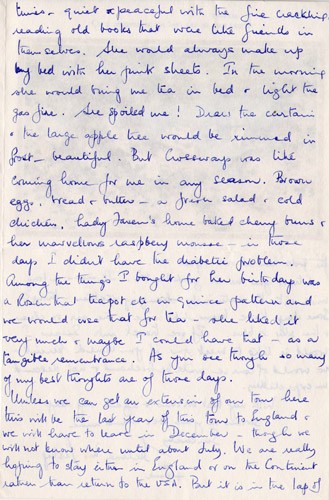 times - quiet & peaceful with the fire crackling
reading old books that were like friends in
themselves. She would always make up
my bed with her pink sheets. In the morning
she would bring me tea in bed & light the
gas fire. She spoiled me! Draw the curtain
& the large apple tree would be rimmed in
frost - beautiful. But Crossways was like
coming home for me in any season. Brown
eggs, bread & butter - a fresh salad & cold
chicken, Lady home baked cherry buns &
her marvellous raspbery mousse - in those
days I didn't have the diabetic problem.
Among the things I bought for her birthdays was
a Rosenthal teapot etc in quince pattern and
we would use that for tea - she liked it
very much & maybe I could have that - as a
tangible remembrance. As you see though so many
of my best thoughts are of those days.
Unless we can get an extension of our tour here
this will be the last year of this tour to England &
we will have to leave in December - though we
will not know where until about July. We are really
hoping to stay either in England or on the Continent
rather than return to the USA. But it is in the lap of